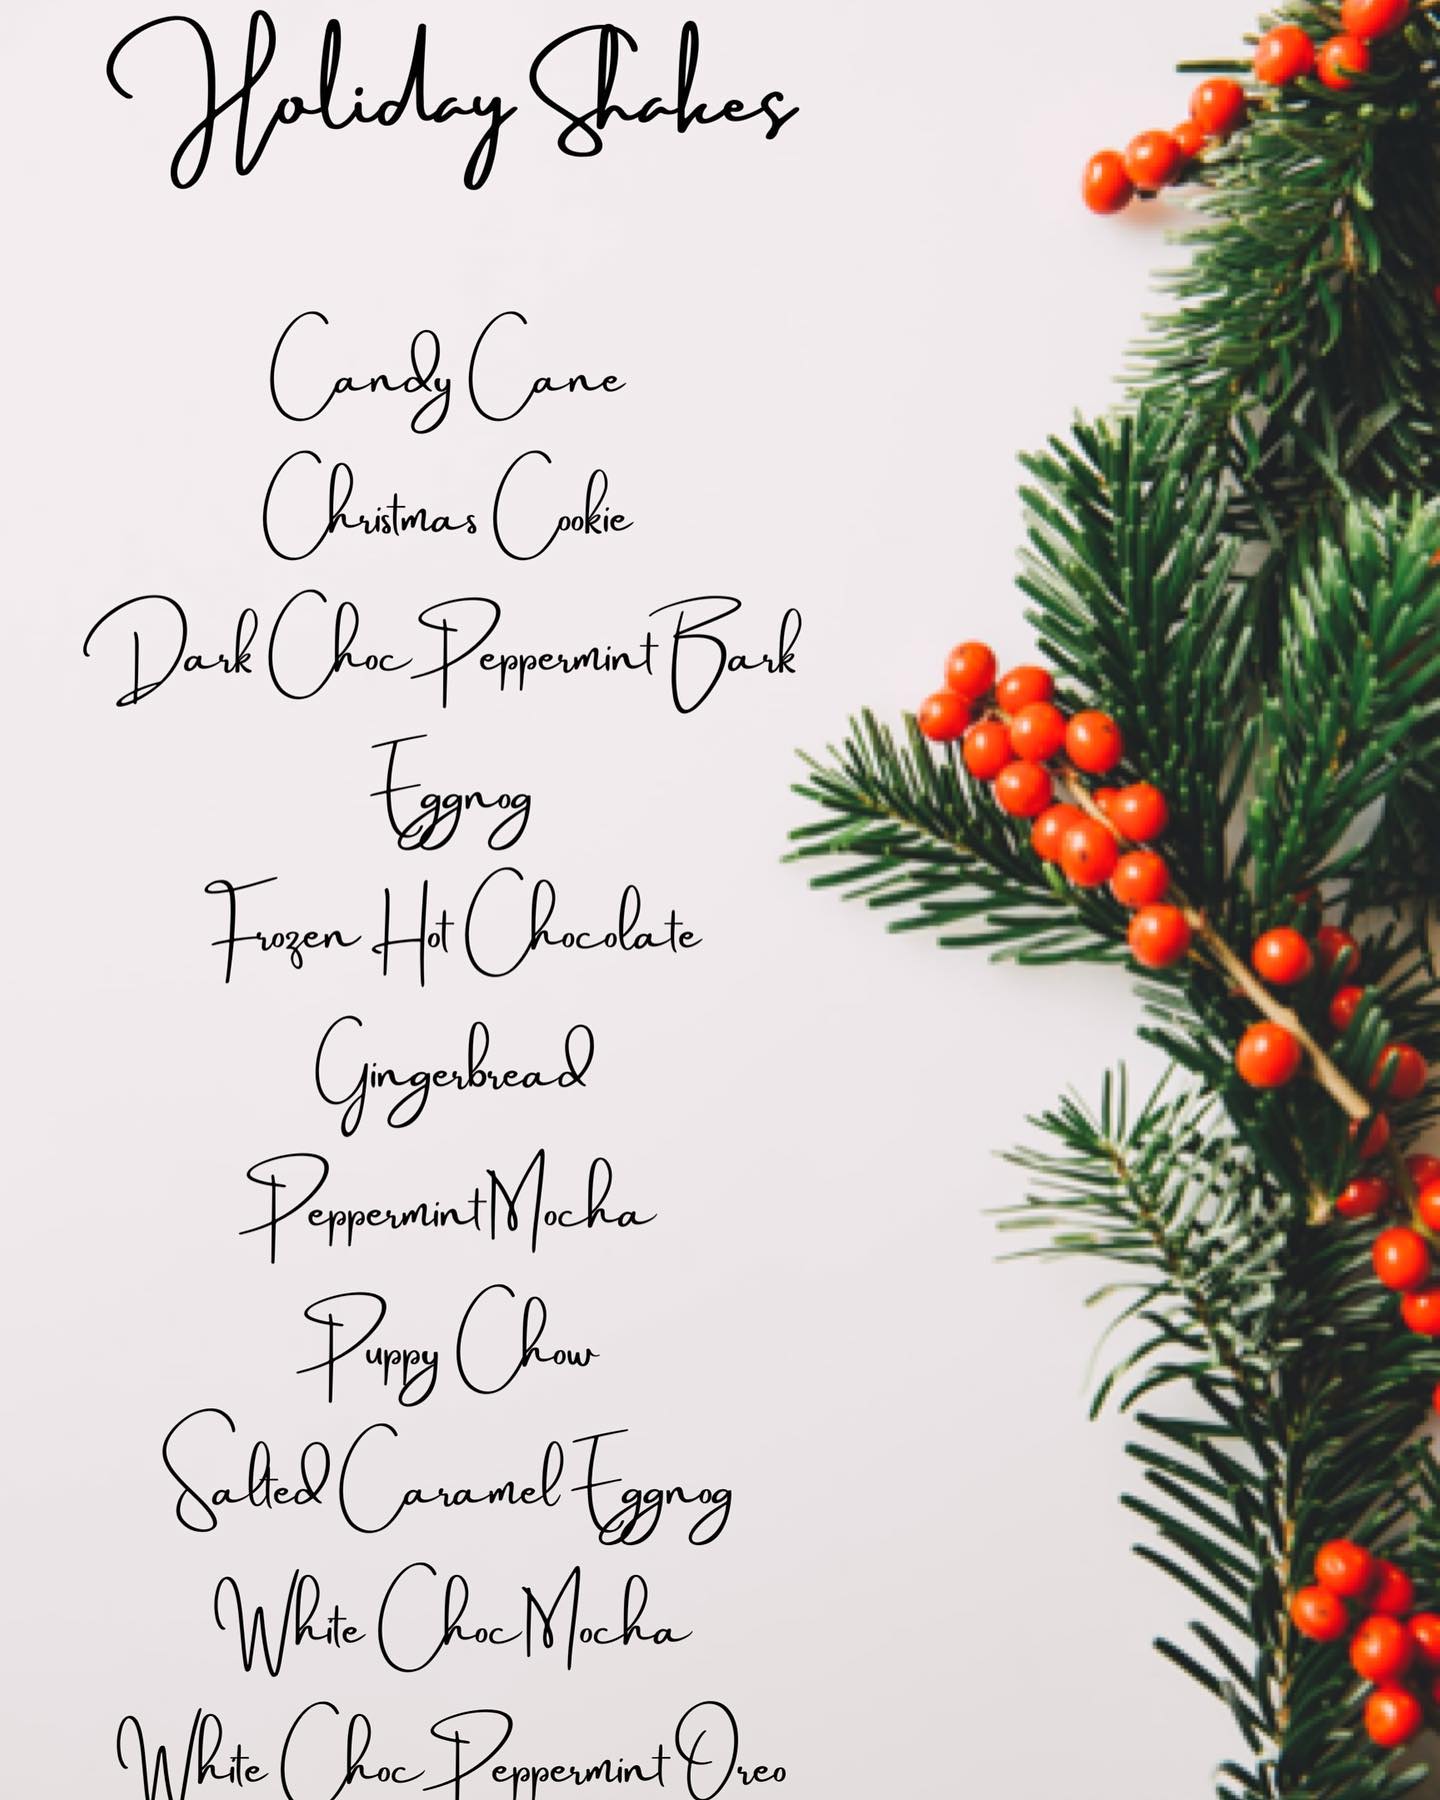 Holiday Shakes
Candy Cane
Christmas Cookie
Dark Choc Peppermint Bark
Eggnog
Frozen Hot Chocolate
Gingerbread
Peppermint Mocha
Puppy Chow
Salted Caramel Eggnog
White Choc Mocha
White Choc Peppermint Oreo